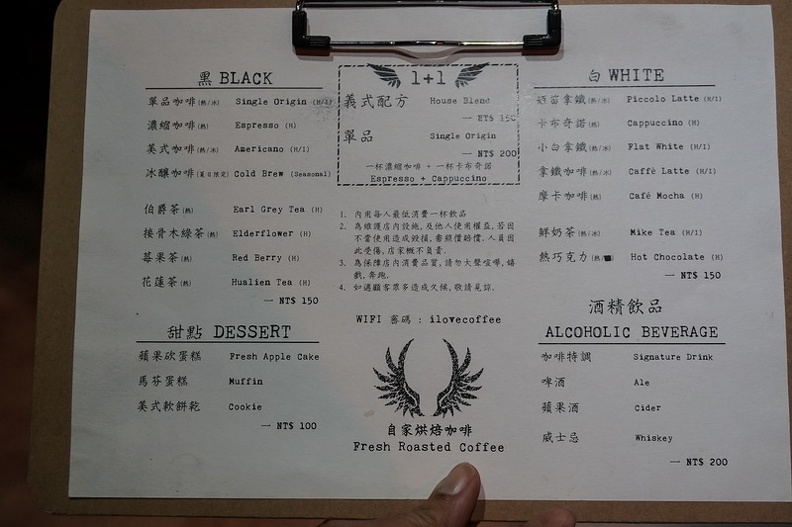 黑 BLACK
單品咖啡(熱/冰) Single Origin (H/I)
濃縮咖啡(熱) Espresso (H)
美式咖啡(熱/冰) Americano (H/I)
冰釀咖啡(夏日限定) Cold Brew (Seasonal)
伯爵茶(熱) Earl Grey Tea (H)
接骨木綠茶(熱) Elderflower (H)
莓果茶(熱) Red Berry (H)
花蓮茶(熱) Hualien Tea (H)
— NT$ 150
甜點 DESSERT
蘋果砍蛋糕 Fresh Apple Cake
馬芬蛋糕 Muffin
美式軟餅乾 Cookie
— NT$ 100
1+1
義式配方 House Blend
— NT$ 150
單品 Single Origin
— NT$ 200
一杯濃縮咖啡 + 一杯卡布奇諾
Espresso + Cappuccino
1. 內用每人最低消費一杯飲品
2. 為維護店內設施,及他人使用權益,若因
不當使用造成毀損,需照價賠償.人員因
此受傷,店家概不負責.
3. 為保障店內消費品質,請勿大聲喧嘩,嬉
戲,奔跑.
4. 如遇顧客眾多造成久候,敬請見諒.
WIFI 密碼 : ilovecoffee
自家烘焙咖啡
Fresh Roasted Coffee
白 WHITE
拿鐵(熱/冰) Piccolo Latte (H/I)
卡布奇諾(熱) Cappuccino (H)
小白拿鐵(熱/冰) Flat White (H/I)
拿鐵咖啡(熱/冰) Caffè Latte (H/I)
摩卡咖啡(熱) Café Mocha (H)
鮮奶茶(熱/冰) Mike Tea (H/I)
熱巧克力(熱/) Hot Chocolate (H)
— NT$ 150
酒精飲品
ALCOHOLIC BEVERAGE
咖啡特調 Signature Drink
啤酒 Ale
蘋果酒 Cider
威士忌 Whiskey
— NT$ 200